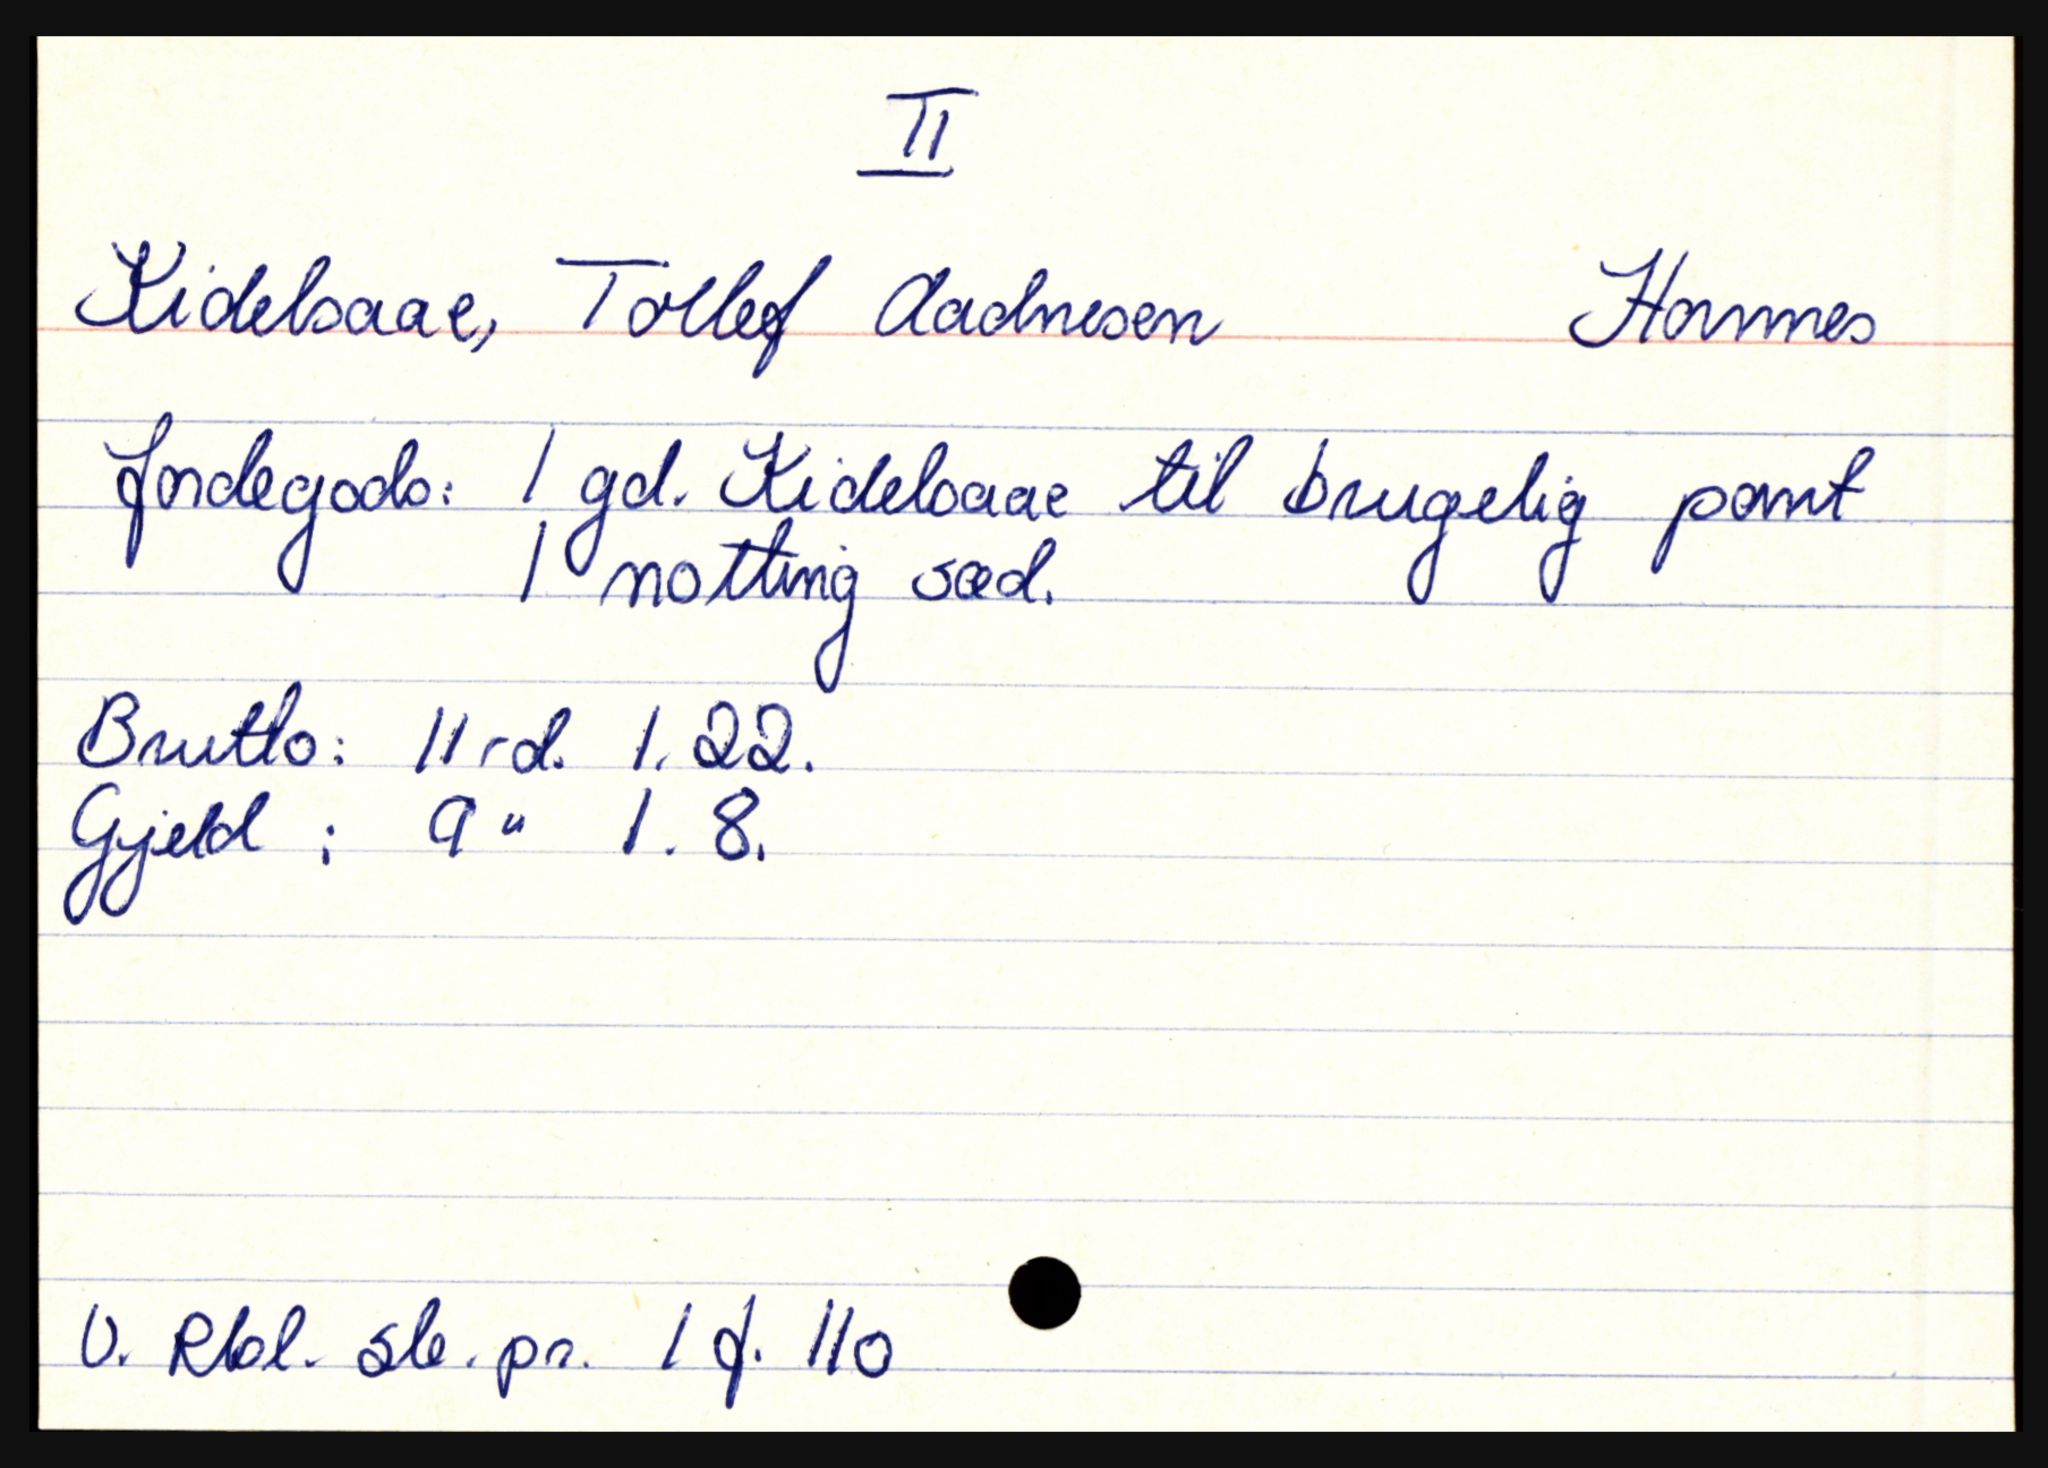 II
Kidelsaae, Tollef Aadnesen Hornnes
Jordegods: 1 gd. Kidelsaae til brugelig pant
1 notting sæd.
Brutto: 11 rd. 1. 22.
Gjeld : 9 " 1. 8.
V. Rbl. sk. pr. 1 f. 110